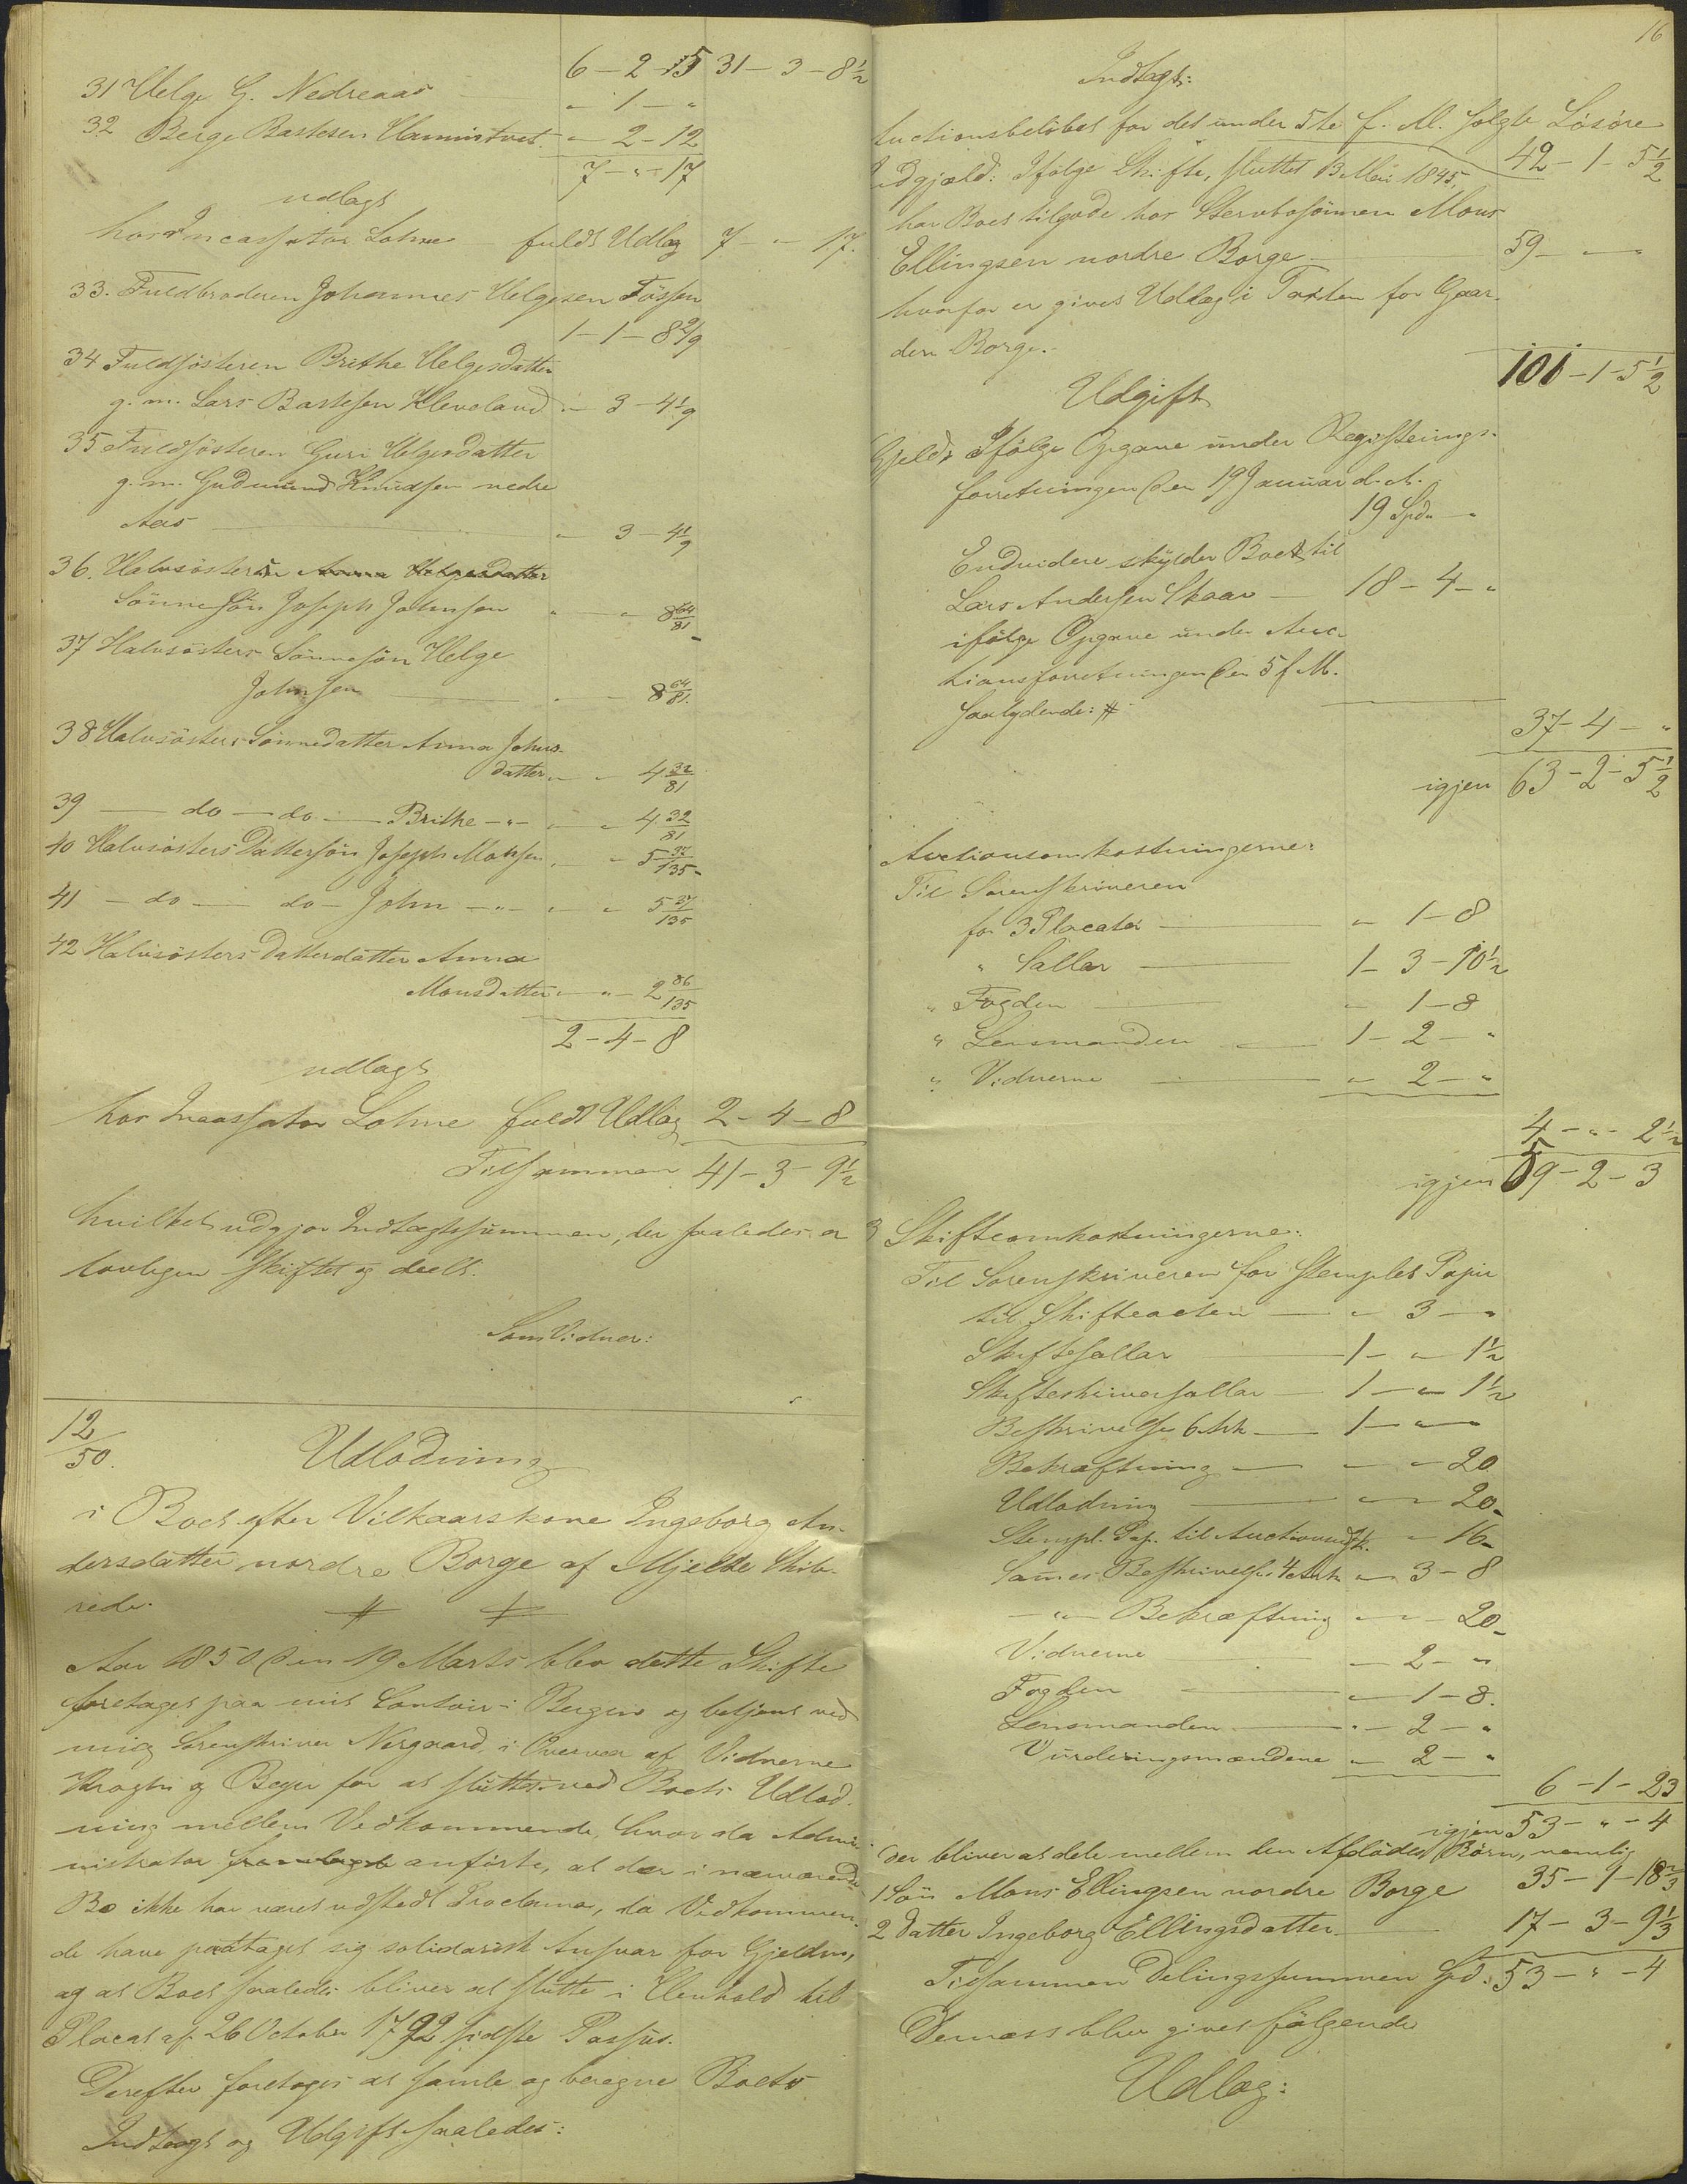 6 - 2 - 15 31 - 3 - 8½
31 Helge G. Nedreaas " 1 - "
32 Berge Bastesen Hamnistvet. " 2 - 12
7 - " - 17
udlagt
hos Incassator Lohne fuldt Udlæg 7 - " - 17.
33. Fuldbroderen Johannes Helgesen Fössen
1 - 1 - 8 2/9
34 Fuldsösteren Brithe Helgesdatter
g. m. Lars Bastesen Kleveland " - 3 - 4 1/9
35 Fuldsösteren Guri Helgesdatter
g. m. Gudmund Knudsen nedre
Aas " 3 - 4 1/9
36. Halvsösteren Anna Helgesdatter
Sönnesön Joseph Johnsen " - " 8 64/81
37 Halvsösters Sönnesön Helge
Johnsen " - " 8 64/81.
38 Halvsösters Sönnedatter Anna Johns-
datter " - " 4 32/81
39 — do — do — Brithe - " - " - " 4 32/81
40 Halvsösters Dattersön Joseph Monsen " - " 5 37/135
41 — do — do — John - " - " - " 5 37/135
42 Halvsösters Datterdatter Anna
Monsdatter " - " - 2 86/135
2 - 4 - 8
udlagt
hos Incassator Lohne fuldt Udlæg 2 - 4 - 8
Tilsammen 41 - 3 - 9½
hvilket udgjør Indtægtssummen, der saaledes er
lovligen skiftet og deelt.
Som Vidner:
12/50.
Udlodning
i Boet efter Vilkaarskone Ingeborg An-
dersdatter nordre Borge af Mjelde Skib-
rede.
Aar 1850 den 19 Marts blev dette Skifte
foretaget paa mit Contoir i Bergen og betjent ved
mig Sorenskriver Norgaard, i Overvær af Vidnerne
Krogh og Beyer for at sluttes ved Boets Udlod-
ning mellem Vedkommende, hvor da Admi-
nistrator fremlagde anförte, at der i nærværende
Bo ikke har været udstedt Proclama, da Vedkommen-
de have paataget sig solidarisk Ansvar for Gjelden,
og at Boet saaledes bliver at slutte i Henhold til
Placat af 26 October 1792 sidste Passus.
Derefter foretoges at samle og beregne Boets
Indtægt og Udgift saaledes:
16
Indtægt:
Auctionsbelöbet for det under 5te f. M. solgte Lösöre
42 - 1 - 5½
Udgjæld: Ifölge Skifte, sluttet 13 Mai 1845,
har Boet tilgode hos Stervbosönnen Mons
Ellingsen nordre Borge 59 - " - "
hvorfor er givet Udlæg i Taxten for Gaar-
den Borge.
101 - 1 - 5½
Udgift
Gjeld: Ifölge Opgave under Registerings-
forretningen den 19 Januar d. A.
19 Spd. "
Endvidere skylder Boet til
Lars Andersen Skaar — 18 - 4 - "
ifölge Opgave under Auc-
tionsforretningen den 5 f. M.
saalydende: #
37 - 4 - "
igjen 63 - 2 - 5½
Auctionsomkostningerne:
Til Sorenskriveren
for 3 Placater — " 1 - 8
" Sallar — 1 - 3 - 10½
" Fogden — " 1 - 8
" Lensmanden — 1 - 2 - "
" Vidnerne — " 2 - "
4 - " - 2½
igjen 59 - 2 - 3
3 Skifteomkostningerne:
Til Sorenskriveren for stemplet Papir
til Skifteacten — " 3 - "
Skiftesallar — 1 - " 1½
Skifteskriversallar — 1 - " 1½
Beskrivelse 6 Ark — 1 - " - "
Bekræftning — " - " 20
Udlodning — " - " 20
Stempl. Pap. til Auctionsudsk. " - 16
Sammes Beskrivelse 4 Ark " 3 - 8
- " - Bekræftning " - " 20
Vidnerne — 2 - "
Fogden " - 1 - 8.
Lensmanden " - 2 - "
Vurderingsmændene " - 2 - "
6 - 1 - 23
igjen 53 - " - 4
der bliver at dele mellem den Afdödes Börn, nemlig
1 Sön Mons Ellingsen nordre Borge 35 - 1 - 18⅔
2 Datter Ingeborg Ellingsdatter — 17 - 3 - 9⅓
Tilsammen Delingssummen Spd. 53 - " - 4
Dernæst blev givet fölgende
Udlæg: